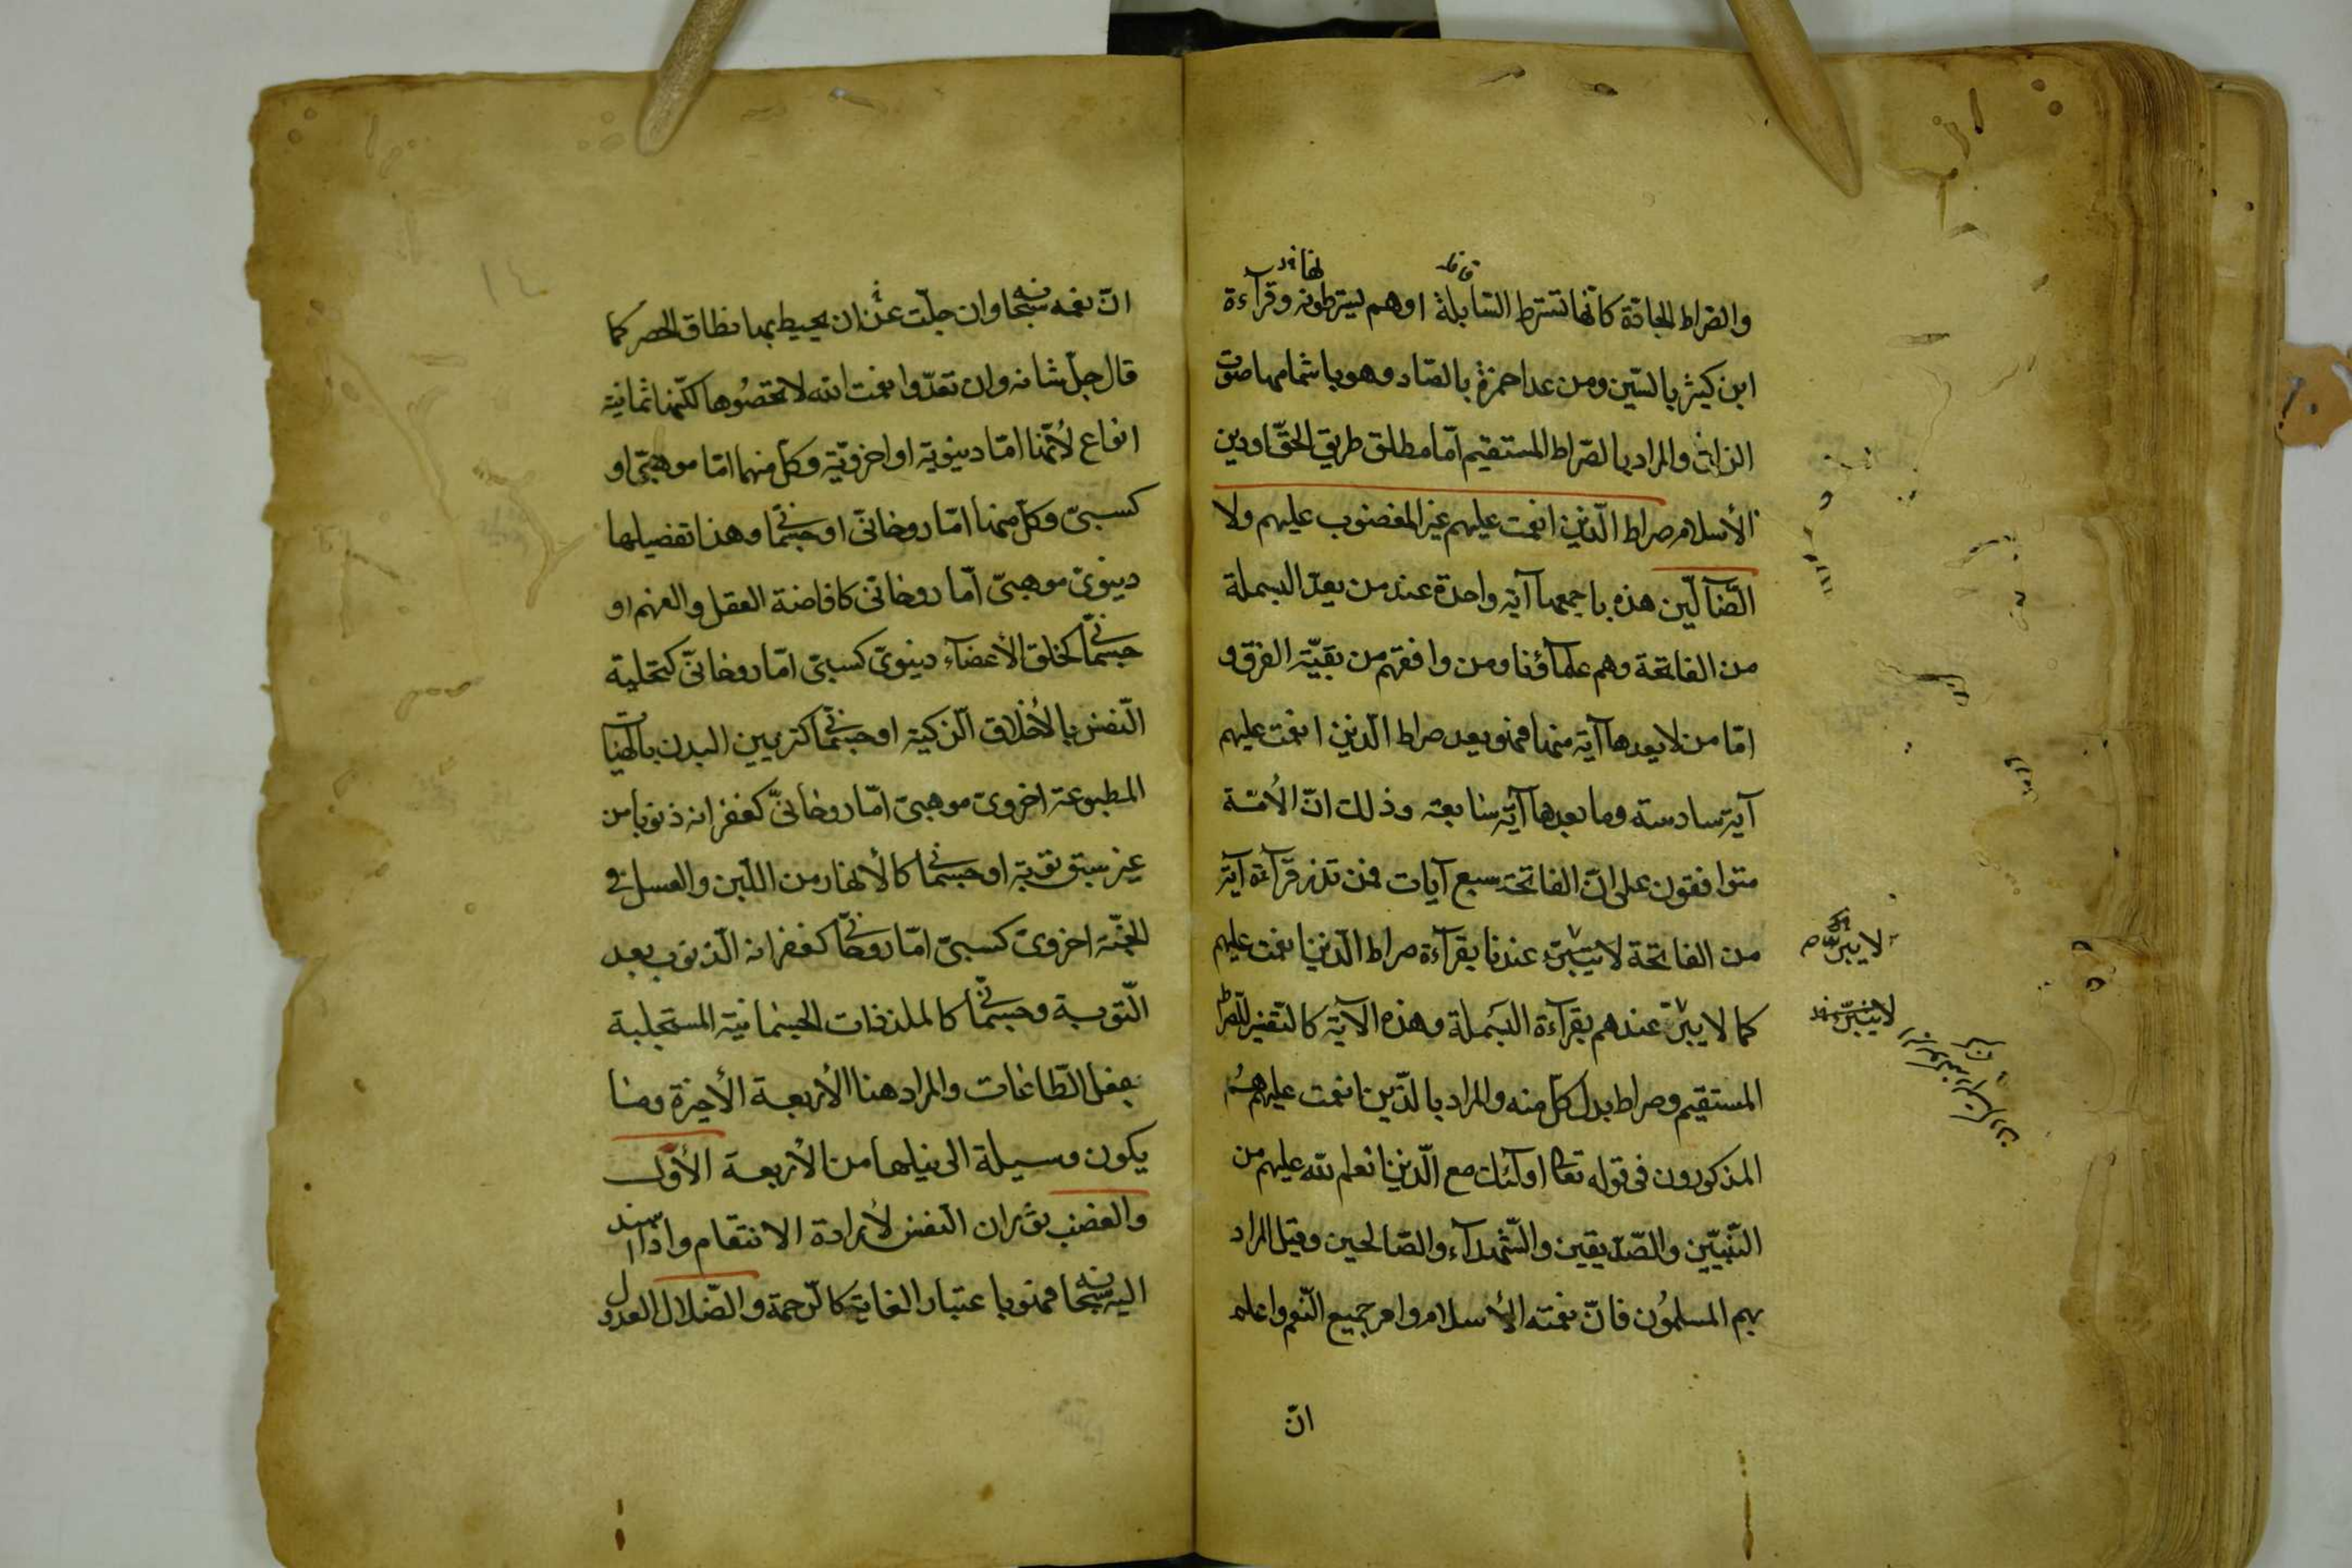 والصراط الجادّة كانها تسترط السّابلة او هم يسترطونها وقرآءة
ابن كثير بالسّين ومن عدا حمزة بالصّاد وهو باشمامها صوت
الزاى والمراد بالصّراط المستقيم امّا مطلق طريق الحقّ او دين
الأسلام صراط الّذين انعمت عليهم غير المغضوب عليهم ولا
الضّآلّين هذه باجمعها آية واحدة عند من يعدّ البسملة
من الفاتحة وهم علمآؤنا ومن وافقهم من بقيّة الفرق و
امّا من لا يعدها آية منها فهو يعد صراط الّذين انعمت عليهم
آية سادسة وما بعدها آية سابعة وذلك انّ الأمّة
متوافقون على انّ الفاتحة سبع آيات فمن نذر قرآءة آية
من الفاتحة لا يبرّء عندنا بقرآءة صراط الّذين انعمت عليهم
كما لا يبرّ عندهم بقرآءة البسملة وهذه الآية كالتّفسير للصّراط
المستقيم وصراط بدل كلّ منه والمراد بالّذين انعمت عليهم هم
المذكورون فى قوله تعالى اولئك مع الّذين انعم الله عليهم من
النّبيّين والصّدّيقين والشّهدآء والصّالحين وقيل المراد
بهم المسلمون فانّ نعمة الأسلام جميع النّعم واعلم
انّ
انّ نعمه سبحانه وان جلّت عن ان يحيط بها نطاق الحصر كما
قال جلّ شانه وان تعدّوا نعمت الله لا تحصوها لكنّها ثمانية
انواع لأنّها امّا دنيويّة او اخرويّة وكلّ منهما امّا موهبىّ او
كسبىّ وكلّ منها امّا روحانىّ او جسمانىّ وهذا تفصيلها
دنيوىّ موهبىّ امّا روحانىّ كافاضة العقل والفهم او
جسمانىّ كخلق الأعضآء دنيوىّ كسبىّ امّا روحانىّ كتحلية
النّفس بالأخلاق الزّكية او جسمانىّ كتزيين البدن بالهيئات
المطبوعة اخروىّ موهبىّ امّا روحانىّ كغفرانه ذنوبنا من
غير سبق توبة او جسمانىّ كالأنهار من اللّبن والعسل فى
الجنّة اخروىّ كسبىّ امّا روحانىّ كغفرانه الذّنوب بعد
التّوبة وجسمانىّ كالملذذات الجسمانيّة المستجلبة
بفعل الطّاعات والمراد هنا الأربعة الأخيرة وما
يكون وسيلة الى نيلها من الأربعة الأول
والغضب ثوران النفس لأرادة الانتقام واذا اسند
اليه سبحانه فهو باعتبار الغاية كالرّحمة والضّلال العدول